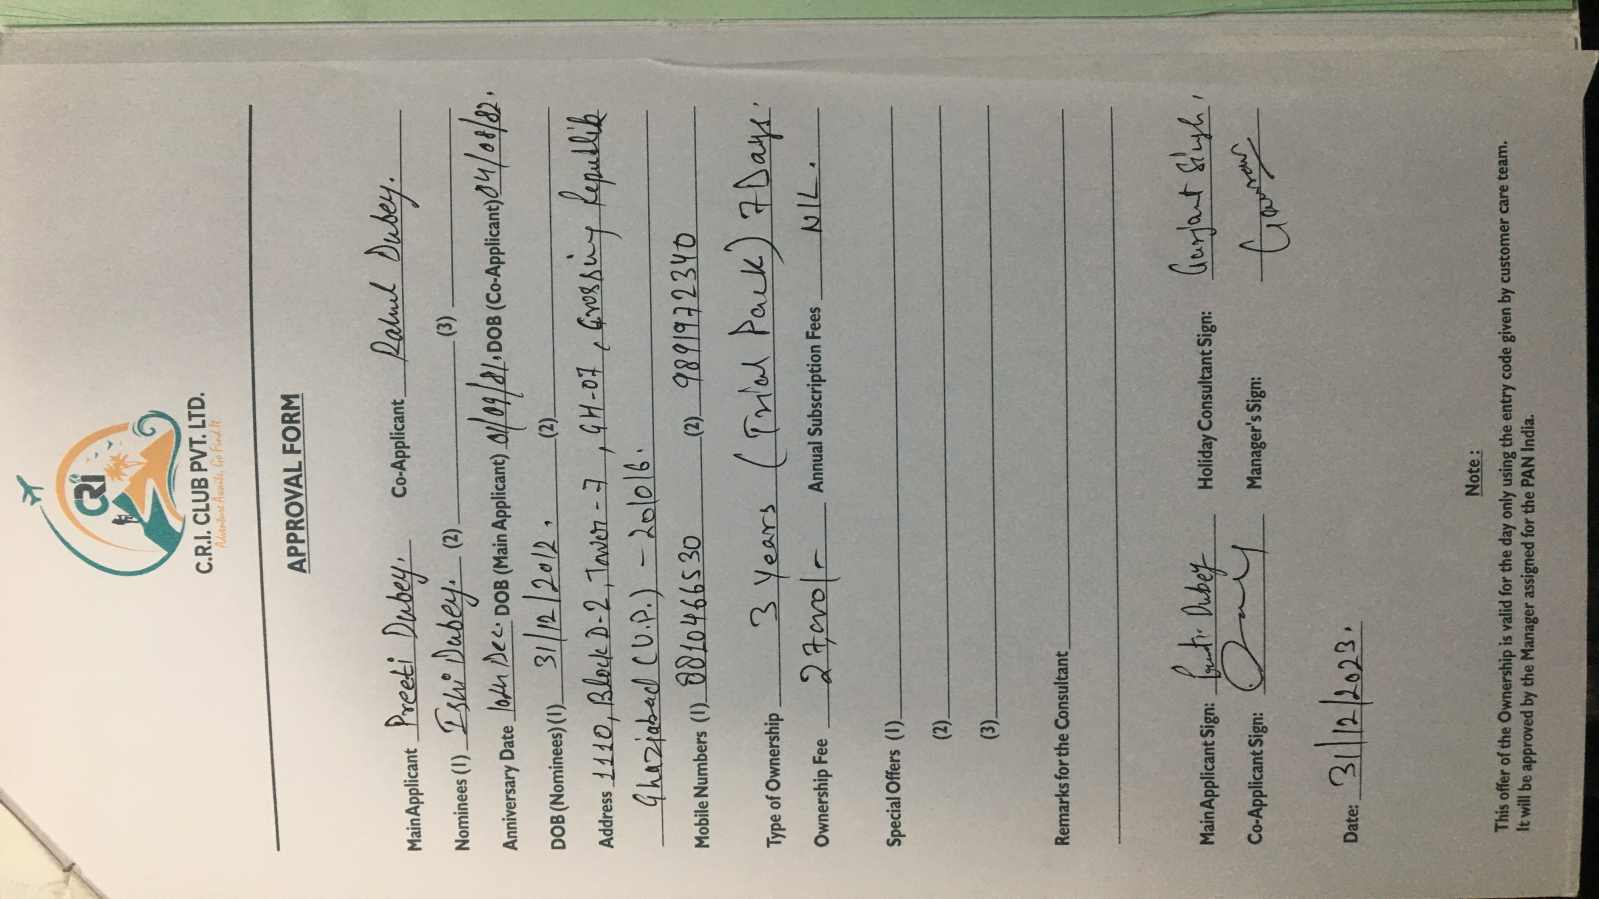 CRI
C.R.I. CLUB PVT. LTD.
Adventure Awaits, Go Find It
APPROVAL FORM
Main Applicant Preeti Dubey. Co-Applicant Rahul Dubey.
Nominees (1) Ishi Dubey. (2) (3)
Anniversary Date 10th Dec. DOB (Main Applicant) 01/09/81, DOB (Co-Applicant) 04/08/82.
DOB (Nominees) (1) 31/12/2012. (2)
Address 1110, Block D-2, Tower-7, GH-07, Crossing Republik
Ghaziabad (U.P.) - 201016.
Mobile Numbers (1) 8810466530 (2) 9891972340
Type of Ownership 3 Years (Trial Pack) 7 Days.
Ownership Fee 27,000/- Annual Subscription Fees NIL.
Special Offers (1)
(2)
(3)
Remarks for the Consultant
Main Applicant Sign: Preeti Dubey Holiday Consultant Sign: Gurjant Singh.
Co-Applicant Sign: Manager's Sign: Gaurav
Date: 31/12/2023.
Note :
This offer of the Ownership is valid for the day only using the entry code given by customer care team.
It will be approved by the Manager assigned for the PAN India.